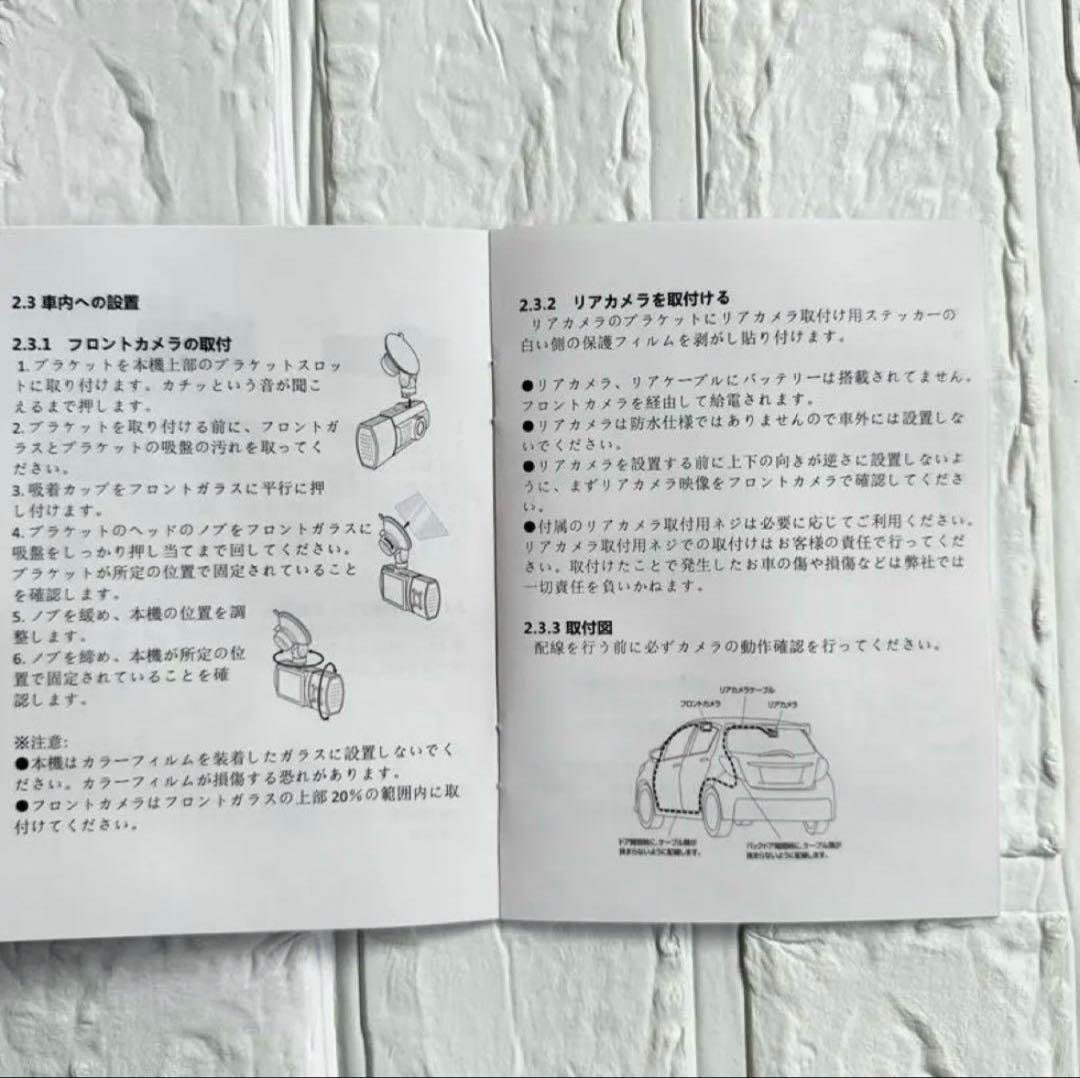 2.3 車内への設置
2.3.1 フロントカメラの取付
1.ブラケットを本機上部のブラケットスロッ
トに取り付けます。カチッという音が聞こ
えるまで押します。
2.ブラケットを取り付ける前に、フロントガ
ラスとブラケットの吸盤の汚れを取ってく
ださい。
3.吸着カップをフロントガラスに平行に押
し付けます。
4.ブラケットのヘッドのノブをフロントガラスに
吸盤をしっかり押し当てまで回してください。
ブラケットが所定の位置で固定されていること
を確認します。
5.ノブを緩め、本機の位置を調
整します。
6.ノブを締め、本機が所定の位
置で固定されていることを確
認します。
※注意:
●本機はカラーフィルムを装着したガラスに設置しないでく
ださい。カラーフィルムが損傷する恐れがあります。
●フロントカメラはフロントガラスの上部20%の範囲内に取
付けてください。
2.3.2 リアカメラを取付ける
リアカメラのブラケットにリアカメラ取付け用ステッカーの
白い側の保護フィルムを剥がし貼り付けます。
●リアカメラ、リアケーブルにバッテリーは搭載されてません。
フロントカメラを経由して給電されます。
●リアカメラは防水仕様ではありませんので車外には設置しな
いでください。
●リアカメラを設置する前に上下の向きが逆さに設置しないよ
うに、まずリアカメラ映像をフロントカメラで確認してくださ
い。
●付属のリアカメラ取付用ネジは必要に応じてご利用ください。
リアカメラ取付用ネジでの取付けはお客様の責任で行ってくだ
さい。取付けたことで発生したお車の傷や損傷などは弊社では
一切責任を負いかねます。
2.3.3 取付図
配線を行う前に必ずカメラの動作確認を行ってください。
リアカメラケーブル
フロントカメラ
リアカメラ
ドア開閉時に、ケーブル類が
挟まらないように配線します。
バックドア開閉時に、ケーブル類が
挟まらないように配線します。